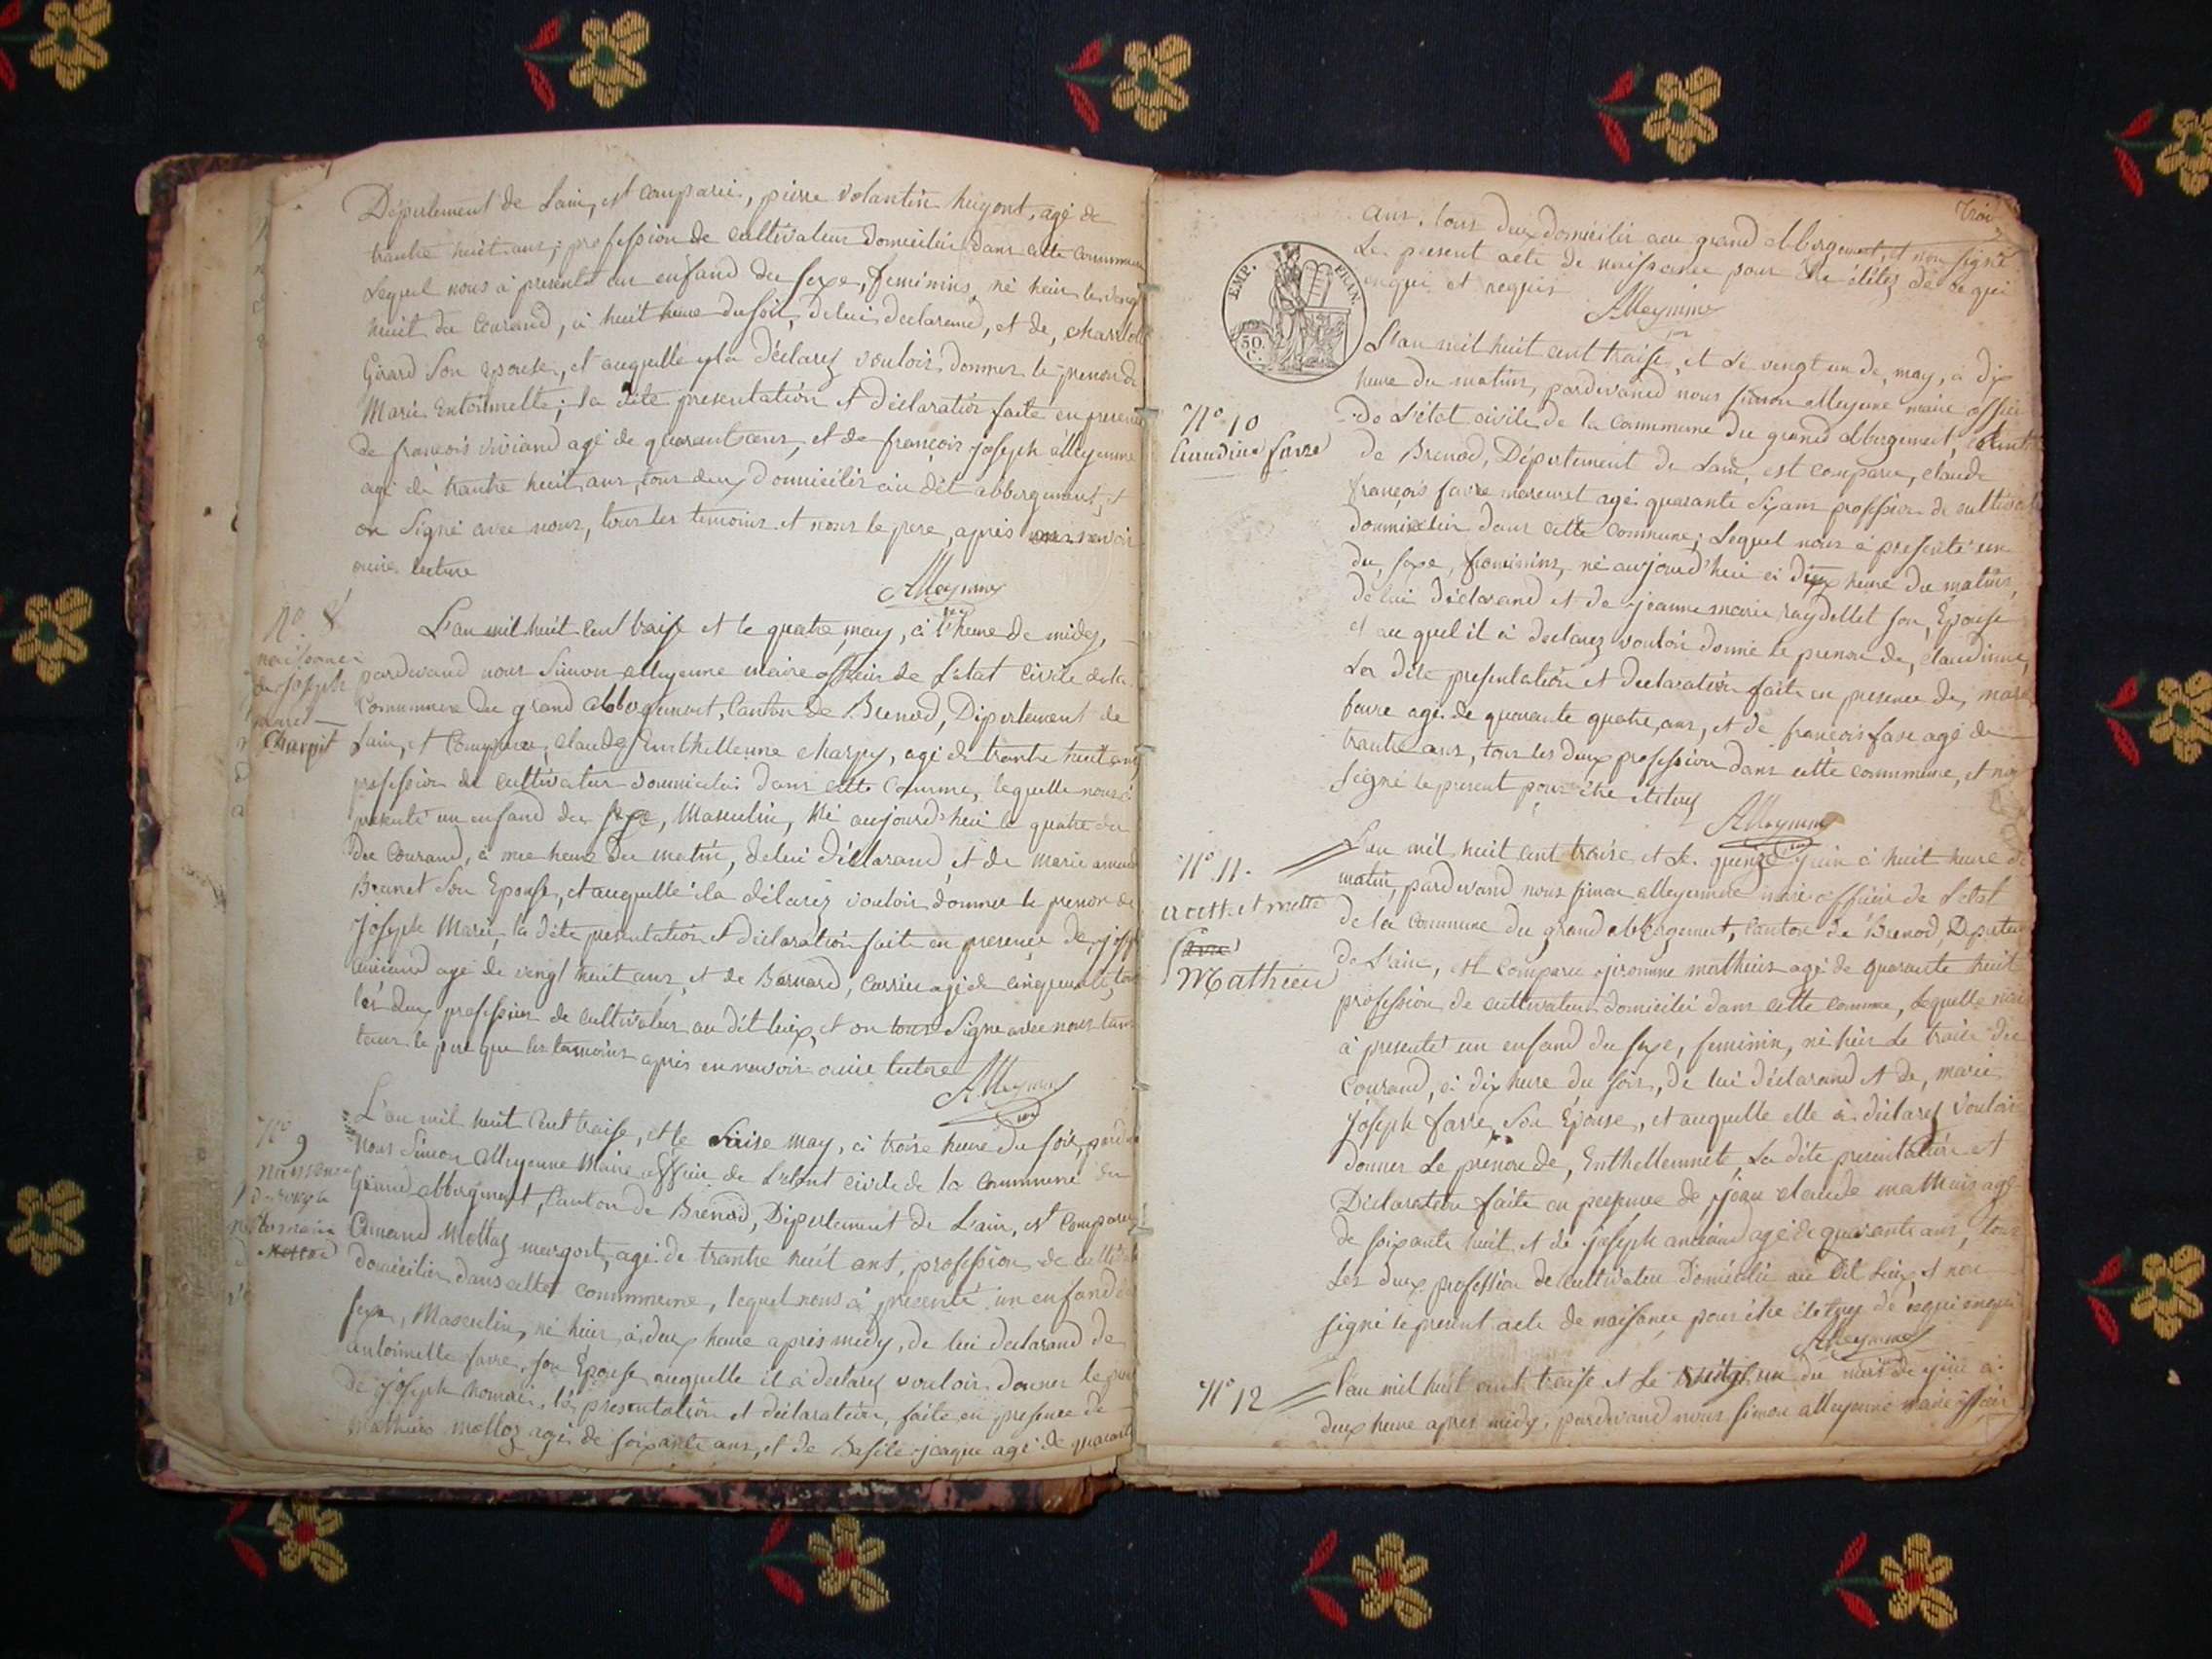 Département de Lain, est comparu, pierre volantin hugont, agé de
trantre huit ans, profession de cultivateur domicilié dans cette commun
Lequel nous à presenté un enfand du sexe, feminins, né heir le vengt
huit du Courand, à huit heure du soir, de lui declarand, et de, charlotte
Girard Son epouse, et auquelle yla déclarez vouloir donner le prenon de
Marie Entoinnette; la dite presentation et déclaration faite en presence
de françois viviand agé de quarent ans, et de françois joseph alleymme
agé de trantre huit ans, tous deux domiciliés au dit abbergement, et
on Signé avec nous, tous les temoins et nous le pere, après
ouire lecture
Alleymme
N° 8
naissance
de joseph
marie
Charpit
L'an mil huit cent traise et le quatre may, à l'heure de midy,
pardevand nous Simon alleymme maire officier de L'etat Civile de la
Commune du grand abbergement, Canton de Brenod, Dipertement de
Lain, et Comparu, claude Enthellemme charpy, agé de trantre huit ans
profession de cultivateur domicilié dans cette Comme, lequelle nous à
presenté un enfand du sexe, Masculin, Né aujourd'hui le quatre du
du Courand, à une heure du matin, de lui déclarand, et de Marie
Brunet Son Epouse, et auquelle ila délarez vouloir donner le prenon de
joseph Marie, la dite presentation et déclaration faite en presence de, josep
agé de vingt huit ans, et de Bernard, Carrier agé de cinquente, tous
les deux profession de cultivateur au dit lieux, et on tous Signe avec nous tant
tous le pere que les temoins après en navoir ouire lecture
Alleymme
N° 9
naissance
de joseph
romain
Mottod
L'an mil huit Cent traise, et le Saise may, à troise heure du soir, pard
nous Simon alleymme Maire officier de L'etat civile de la Commune du
Grand abbergement, Canton de Brenod, Dipertement de L'ain, est Comparu
Armand Mottaz margort, agé de trantre huit ans, profession de cultiv
domicilier dans cette commmune, lequel nous à presenté un enfand du
sexe, Masculin, né hier, à deux heure après midy, de lui declarand de
antoinnette favre, son Epouse, auquelle il à declarez vouloir donner le pre
de joseph Romain, la presentation et déclaration, faite en presence de
Mathieu mottoz agé de soixante ans, et de Basile jeaque agé de quarante
Trois
ans, tous deux domicilié aeu grand abbergement, et non signé
Le present acte de naissance pour être étitez de ce qui
enqui et requis
Alleymme
EMP. FRAN.
50. C.
N° 10
Claudine favre
L'an mil huit cent traise, et Le vengt un de, may, à dix
heure du matin, pardevand nous simon alleymme maire officie
de L'etat civile de la Commune du grand abbergement, Cant
de Brenod, Département de Lain, est comparu, claude
françois favre marcuret agé quarante six ans profession de cultivate
dommicilié dans cette Commune; Lequel nous à presenté un
du, sexe, feominins, né aujourd'hui à dix heure du matins,
de lui déclarand et de jeanne marie raydellet son, Epouse
et au quel il à declarez vouloir donné le prenon de, claudinne,
La dite presentation et declaration faite en presence de, marie
favre agé de quarante quatre ans, et de françois fave agé de
trante ans, tous les deux profession dans cette commune, et non
signé le present pour être étituez
Alleymme
N° 11.
favre
Mathieu
L'an mil huit cent traise et Le quinze juin à huit heure de
matin, pardevand nous simon alleymme maire officier de L'etat
de la Commune du grand abbergement, Canton de Brenod, Depertem
de L'ain, est comparu jeromme mathieux agé de quarante huit
profession de cultivateur domicilié dans cette comme, Lequelle nous
à presenté un enfand du sexe, feminin, né hier Le traise du
Courand, à dix hure du soir, de lui déclarand et de, marie
joseph favre, Son Epouse, et auquelle elle à déclarez vouloir
donner Le prenon de, Enthellemnete, La dite presentation et
Déclaration faite en presence de, jean claude mathieux agé
de soixante huit, et de joseph anciand agé de quarante ans, tous
Les deux profession de cultivateu domicilié au dit Lieux et non
signé le present acte de naissance pour être étituez de cequi enqui
Alleymme
N° 12
L'an mil huit cent traise et Le vengt un du mois de juin à
deux heure apres midy, pardevand nous simon alleymme maire officier